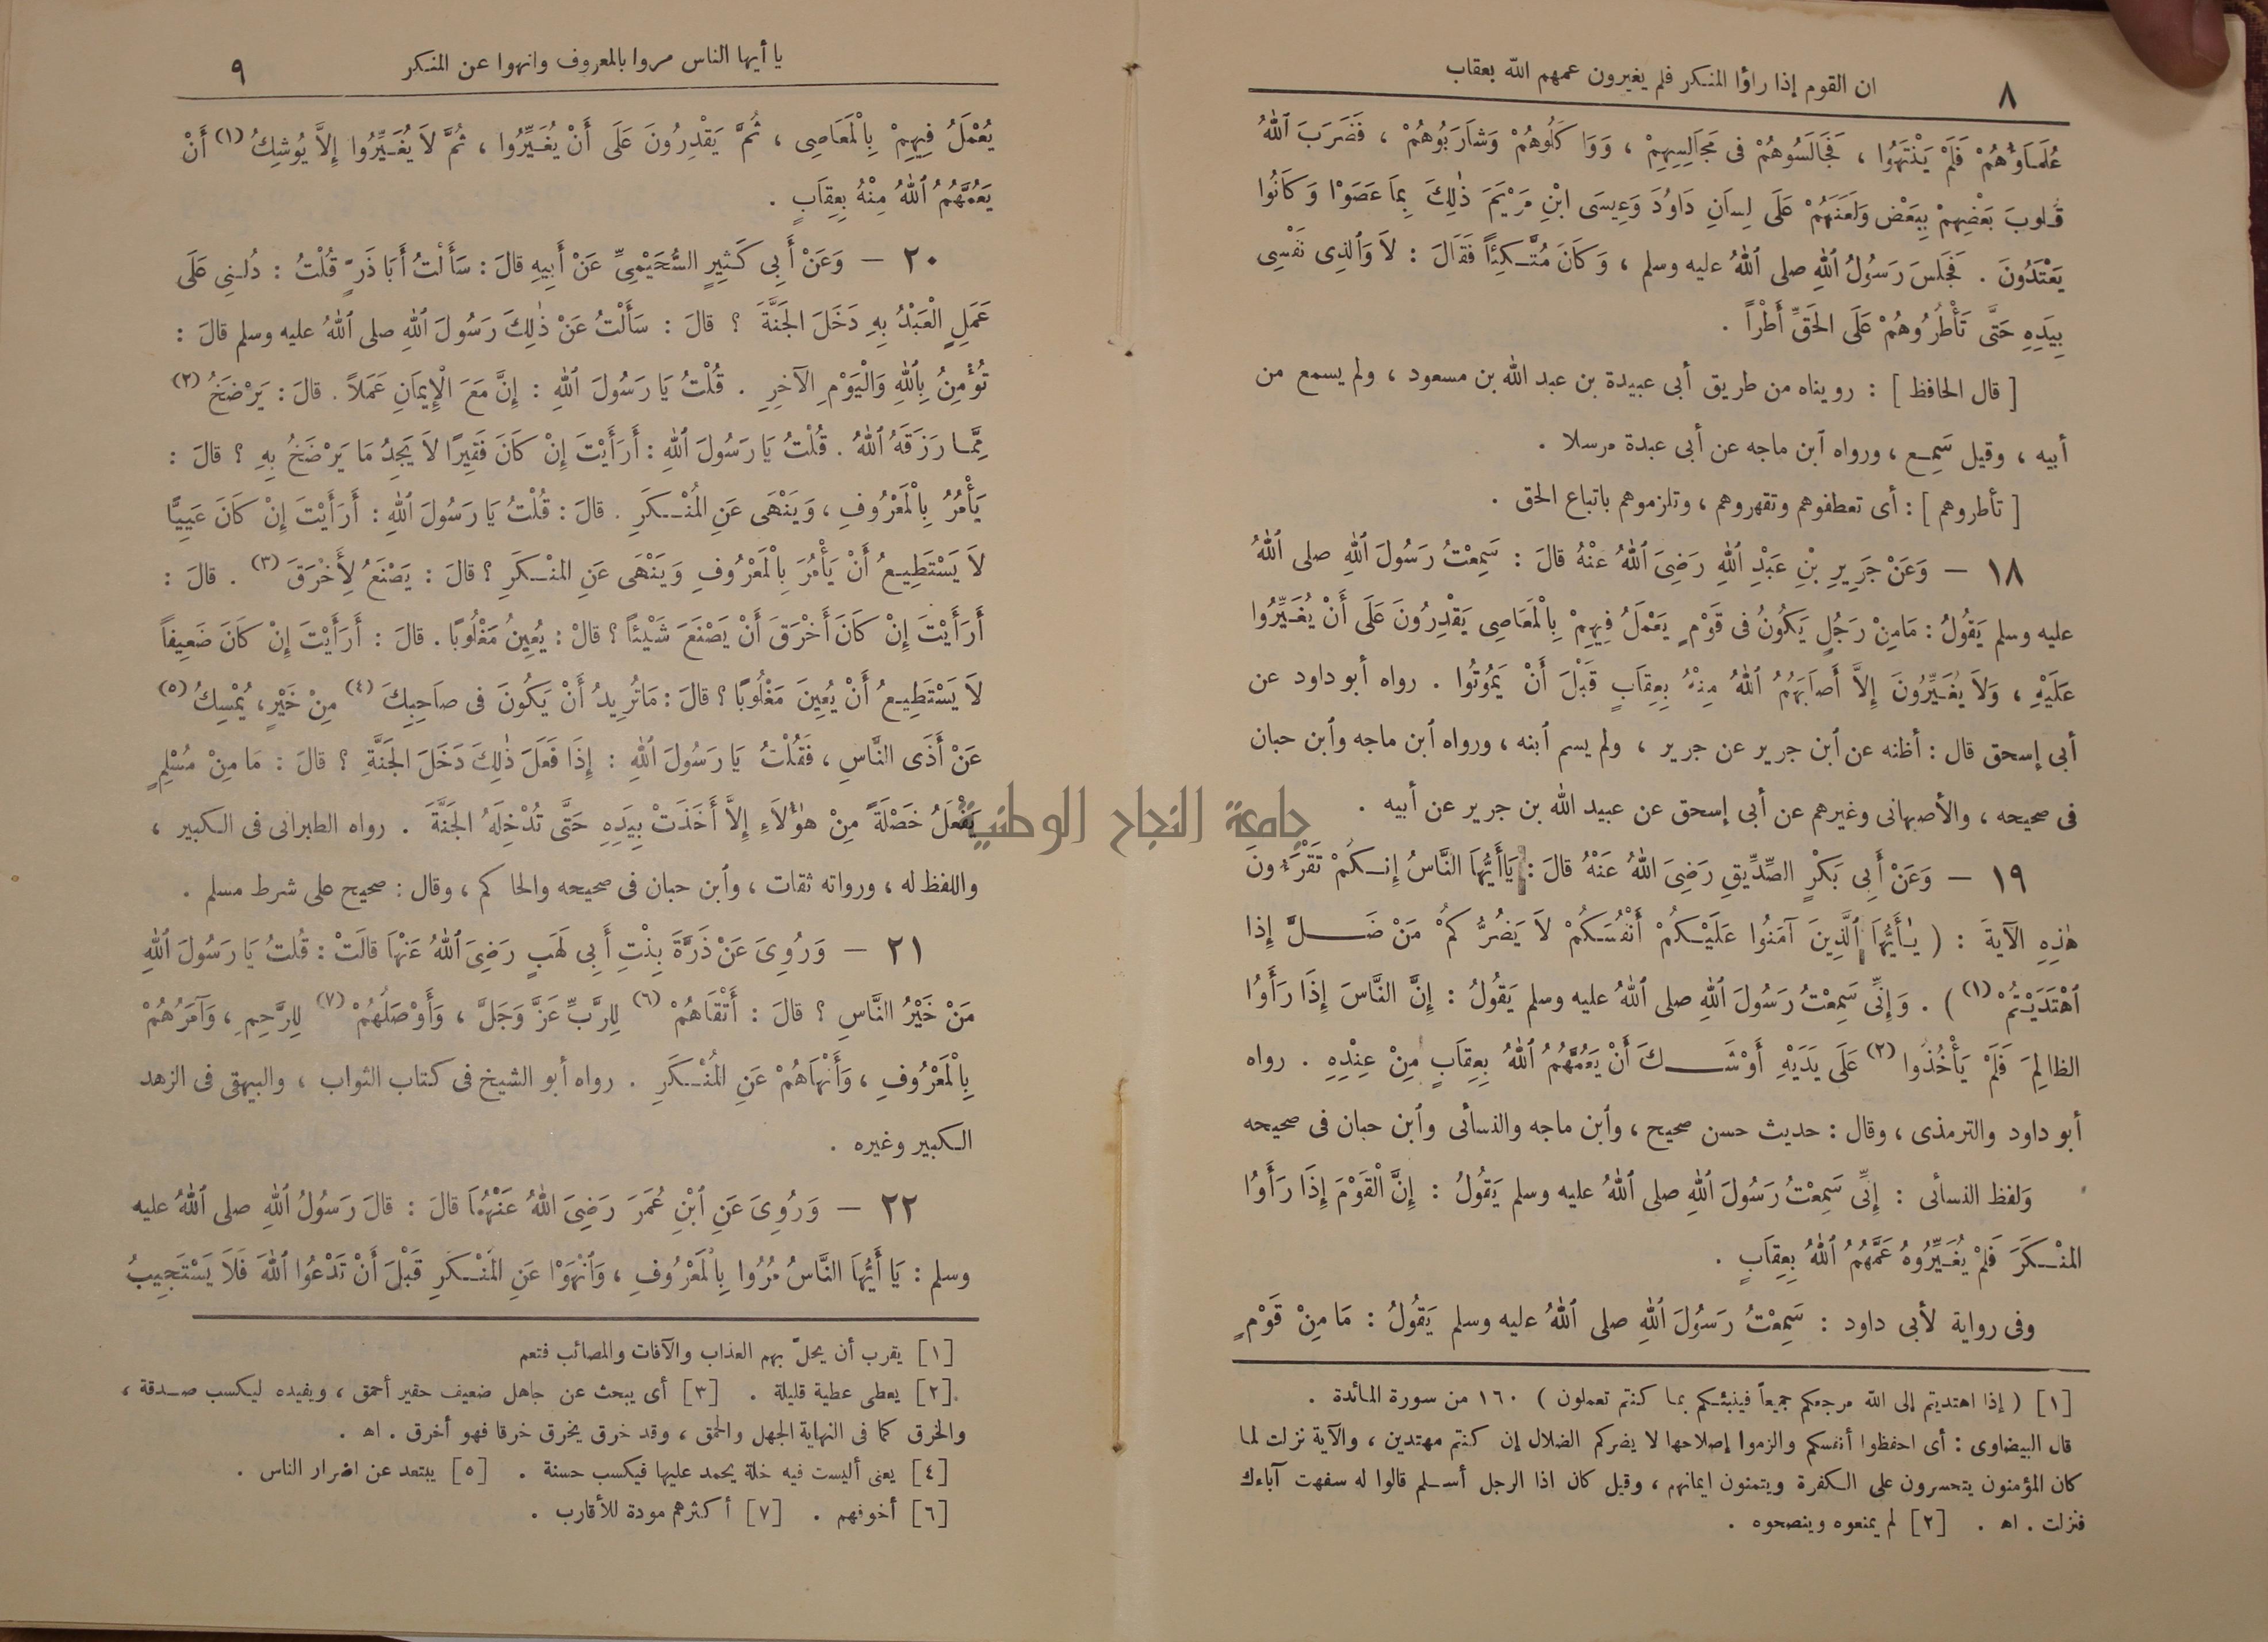 ٨
ان القوم إذا راؤا المنكر فلم يغيرون عمهم الله بعقاب
عُلَمَاؤُهُمْ فَلَمْ يَنْتَهُوا ، فَجَالَسُوهُمْ فى مَجَالِسِهِمْ ، وَوَاكَلُوهُمْ وَشَارَبُوهُمْ ، فَضَرَبَ ٱللهُ
قُلوبَ بَعْضِهِمْ بِبَعْضٍ وَلَعَنَهُمْ عَلَى لِسَانِ دَاوُدَ وَعِيسَى ابْنِ مَرْيَمَ ذٰلِكَ بِمَا عَصَوْا وَكَانُوا
يَعْتَدُونَ . فَجَلَسَ رَسُولُ ٱللهِ صلى ٱللهُ عليه وسلم ، وَكَانَ مُتَّكِئاً فَقَالَ : لاَ وَٱلذِى نَفْسِى
بِيَدِهِ حَتَّى تَأْطُرُوهُمْ عَلَى الحَقِّ أَطْراً .
[ قال الحافظ ] : رويناه من طريق أبى عبيدة بن عبد الله بن مسعود ، ولم يسمع من
أبيه ، وقيل سَمِع ، ورواه ٱبن ماجه عن أبى عبدة مرسلا .
[ تأطروهم ] : أى تعطفوهم وتقهروهم ، وتلزموهم باتباع الحق .
١٨ — وَعَنْ جَرِيرِ بْنِ عَبْدِ ٱللهِ رَضِىَ ٱللهُ عَنْهُ قالَ : سَمِعْتُ رَسُولَ ٱللهِ صلى ٱللهُ
عليه وسلم يَقُولُ : مَامِنْ رَجُلٍ يَكُونُ فى قَوْمٍ يَعْمَلُ فِيهِمْ بِالْمَعَاصِى يَقْدِرُونَ عَلَى أَنْ يُغَيِّرُوا
عَلَيْهِ ، وَلاَ يُغَيِّرُونَ إِلاَّ أَصَابَهُمُ ٱللهُ مِنْهُ بِعِقَابٍ قَبْلَ أَنْ يَمُوتُوا . رواه أبو داود عن
أبى إسحق قال : أظنه عن ٱبن جرير عن جرير ، ولم يسم ٱبنه ، ورواه ٱبن ماجه وٱبن حبان
فى صحيحه ، والأصبهانى وغيرهم عن أبى إسحق عن عبيد الله بن جرير عن أبيه .
١٩ — وَعَنْ أَبِى بَكْرٍ الصِّدِّيقِ رَضِىَ ٱللهُ عَنْهُ قالَ : يَاأَيُّهَا النَّاسُ إِنكُمْ تَقْرَءُونَ
هٰذِهِ الآيَةَ : ( يٰأَيُّهَا ٱلَّذِينَ آمَنُوا عَلَيْكُمْ أَنْفُسَكُمْ لاَ يَضُرُّكُمْ مَنْ ضَلَّ إِذا
ٱهْتَدَيْتُمْ (١) ) . وَإِنِّى سَمِعْتُ رَسُولَ ٱللهِ صلى ٱللهُ عليه وسلم يَقُولُ : إِنَّ النَّاسَ إِذَا رَأَوُا
الظالِمَ فَلَمْ يَأْخُذُوا (٢) عَلَى يَدَيْهِ أَوْشَكَ أَنْ يَعُمَّهُمُ ٱللهُ بِعِقَابٍ مِنْ عِنْدِهِ . رواه
أبو داود والترمذى ، وقال : حديث حسن صحيح ، وٱبن ماجه والنسأئى وٱبن حبان فى صحيحه
وَلفظ النسأئى : إِنِّى سَمِعْتُ رَسُولَ ٱللهِ صلى ٱللهُ عليه وسلم يَقُولُ : إِنَّ الْقَوْمَ إِذَا رَأَوُا
المنْكَرَ فَلَمْ يُغَيِّرُوهُ عَمَّهُمُ ٱللهُ بِعِقَابٍ .
وفى رواية لأبى داود : سَمِعْتُ رَسُولَ ٱللهِ صلى ٱللهُ عليه وسلم يَقُولُ : مَا مِنْ قَوْمٍ
[١] ( إذا اهتديتم إلى الله مرجعكم جميعاً فينبئكم بما كنتم تعملون ) ١٦٠ من سورة المائدة .
قال البيضاوى : أى احفظوا أنفسكم والزموا إصلاحها لا يضركم الضلال إن كنتم مهتدين ، والآية نزلت لما
كان المؤمنون يتحسرون على الكفرة ويتمنون ايمانهم ، وقيل كان اذا الرجل أسلم قالوا له سفهت آباءك
فنزلت . اه . [٢] لم يمنعوه وينصحوه .
يا أيها الناس مروا بالمعروف وانهوا عن المنكر
٩
يُعْمَلُ فِيهِمْ بِالْمَعَاصِى ، ثُمَّ يَقْدِرُونَ عَلَى أَنْ يُغَيِّرُوا ، ثُمَّ لاَ يُغَيِّرُوا إِلاَّ يُوشِكُ (١) أَنْ
يَعُمَّهُمُ ٱللهُ مِنْهُ بِعِقَابٍ .
٢٠ — وَعَنْ أَبِى كَثِيرٍ السُّحَيْمِىِّ عَنْ أَبِيهِ قالَ : سَأَلْتُ أَبَا ذَرٍّ قُلْتُ : دُلنِى عَلَى
عَمَلٍ الْعَبْدُ بِهِ دَخَلَ الجَنَّةَ ؟ قالَ : سَأَلْتُ عَنْ ذٰلِكَ رَسُولَ ٱللهِ صلى ٱللهُ عليه وسلم قالَ :
تُؤْمِنُ بِاللهِ وَالْيَوْمِ الآخِرِ . قُلْتُ يَا رَسُولَ ٱللهِ : إِنَّ مَعَ الْإِيمَانِ عَمَلاً . قالَ : يَرْضَخُ (٢)
مِمَّا رَزَقَهُ ٱللهُ . قُلْتُ يَا رَسُولَ ٱللهِ : أَرَأَيْتَ إِنْ كَانَ فَقِيرًا لاَ يَجِدُ مَا يَرْضَخُ بِهِ ؟ قالَ :
يَأْمُرُ بِالْمَعْرُوفِ ، وَيَنْهَى عَنِ المُنْكَرِ . قالَ : قُلْتُ يَا رَسُولَ ٱللهِ : أَرَأَيْتَ إِنْ كَانَ عَيِيًّا
لاَ يَسْتَطِيعُ أَنْ يَأْمُرَ بِالْمَعْرُوفِ وَيَنْهَى عَنِ المنْكَرِ ؟ قالَ : يَصْنَعُ لِأَخْرَقَ (٣) . قالَ :
أَرَأَيْتَ إِنْ كَانَ أَخْرَقَ أَنْ يَصْنَعَ شَيْئاً ؟ قالْ : يُعِينُ مَغْلُوبًا . قالَ : أَرَأَيْتَ إِنْ كَانَ ضَعِيفاً
لاَ يَسْتَطِيعُ أَنْ يُعِينَ مَغْلُوبًا ؟ قالَ : مَاتُرِيدُ أَنْ يَكُونَ فى صَاحِبِكَ (٤) مِنْ خَيْرٍ ، يُمْسِكُ (٥)
عَنْ أَذَى النَّاسِ ، فَقُلْتُ يَا رَسُولَ ٱللهِ : إِذَا فَعَلَ ذٰلِكَ دَخَلَ الجَنَّةِ ؟ قالَ : مَا مِنْ مُسْلِمٍ
يَفْعَلُ خَصْلَةً مِنْ هٰؤُلاَءِ إِلاَّ أَخَذَتْ بِيَدِهِ حَتَّى تُدْخِلَهُ الجَنَّةَ . رواه الطبرانى فى الكبير ،
واللفظ له ، ورواته ثقات ، وٱبن حبان فى صحيحه والحاكم ، وقال : صحيح على شرط مسلم .
٢١ — وَرُوِىَ عَنْ ذَرَّةَ بِنْتِ أَبِى لَهَبٍ رَضِىَ ٱللهُ عَنْهَا قالَتْ : قُلتُ يَا رَسُولَ ٱللهِ
مَنْ خَيْرُ النَّاسِ ؟ قالَ : أَتْقَاهُمْ (٦) لِلرَّبِّ عَزَّ وَجَلَّ ، وَأَوْصَلُهُمْ (٧) لِلرَّحِمِ ، وَآمَرُهُمْ
بِالْمَعْرُوفِ ، وَأَنْهَاهُمْ عَنِ المُنْكَرِ . رواه أبو الشيخ فى كتاب الثواب ، والبيهقى فى الزهد
الكبير وغيره .
٢٢ — وَرُوِىَ عَنِ ٱبْنِ عُمَرَ رَضِىَ ٱللهُ عَنْهُمَا قالَ : قالَ رَسُولُ ٱللهِ صلى ٱللهُ عليه
وسلم : يَا أَيُّهَا النَّاسُ مُرُوا بِالْمَعْرُوفِ ، وَٱنْهَوْا عَنِ المُنْكَرِ قَبْلَ أَنْ تَدْعُوا ٱللهَ فَلاَ يَسْتَجِيبُ
[١] يقرب أن يحلّ بهم العذاب والآفات والمصائب فتعم
[٢] يعطى عطية قليلة . [٣] أى يبحث عن جاهل ضعيف حقير أحمق ، ويفيده ليكسب صدقة ،
والخرق كما فى النهاية الجهل والحمق ، وقد خرق يخرق خرقا فهو أخرق . اه .
[٤] يعنى أليست فيه خلة يحمد عليها فيكسب حسنة . [٥] يبتعد عن اضرار الناس .
[٦] أخوفهم . [٧] أكثرهم مودة للأقارب .
جامعة النجاح الوطنية